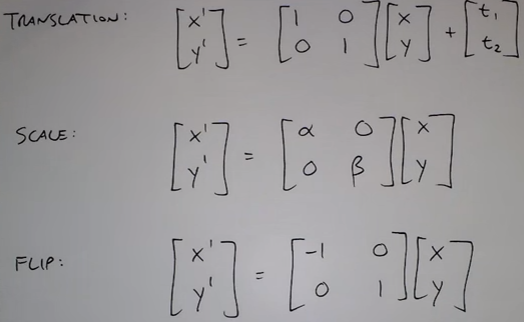 TRANSLATION: [x' y'] = [1 0 0 1] [x y] + [t₁ t₂]
SCALE: [x' y'] = [α 0 0 β] [x y]
FLIP: [x' y'] = [-1 0 0 1] [x y]